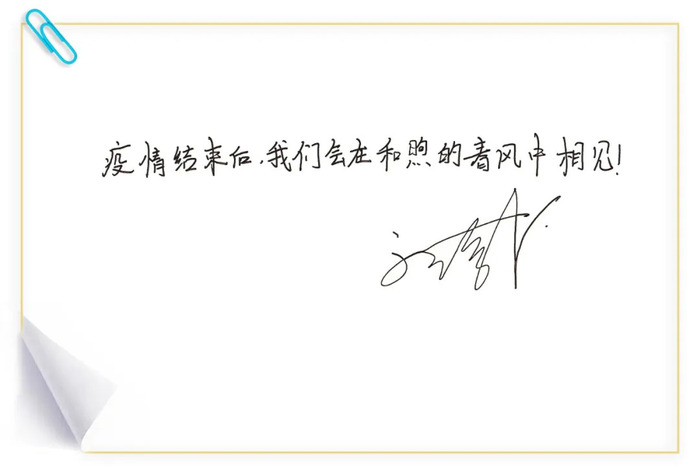 疫情结束后,我们会在和煦的春风中相见!